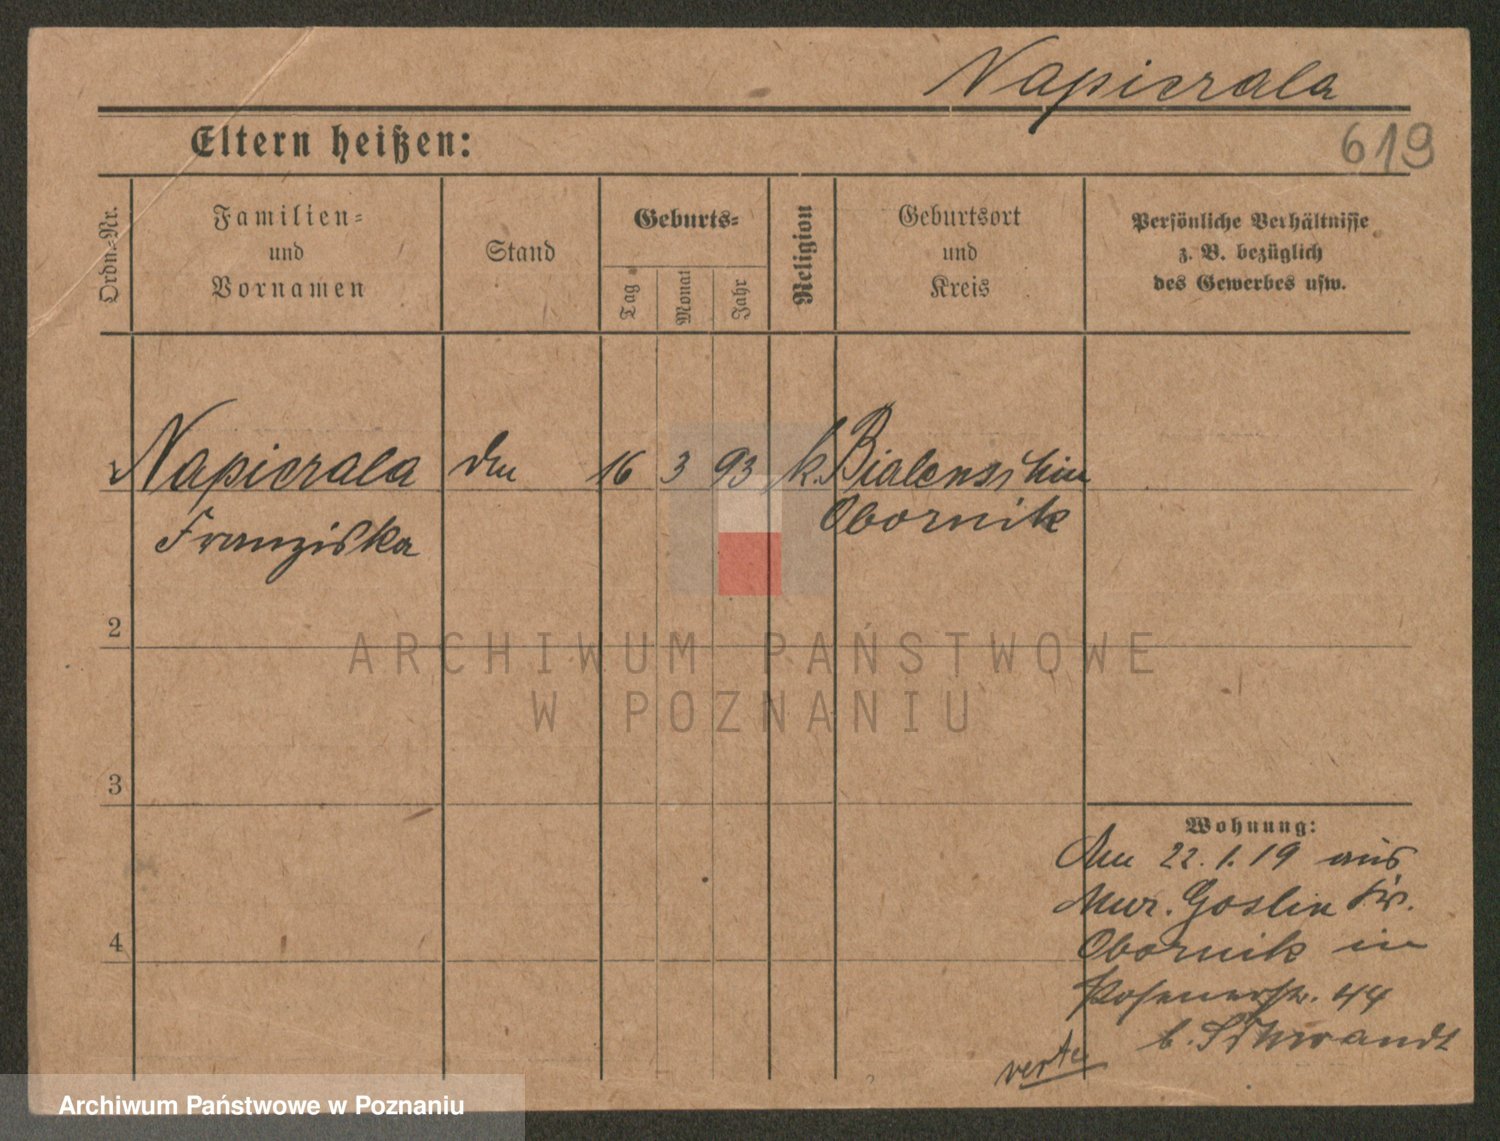 Napierala
619
Eltern heißen:
Ordn.-Nr.
Familien-
und
Vornamen
Stand
Geburts-
Tag
Monat
Jahr
Religion
Geburtsort
und
Kreis
Persönliche Verhältnisse
z. B. bezüglich
des Gewerbes usw.
Napierala 16 3 93 k.
Franziska Obornik
2
3
4
Wohnung:
22.1.19 aus
Mur. Goslin Kr.
Obornik in
Posenerstr. 44
b. Schwandt
verte
ARCHIWUM PAŃSTWOWE
W POZNANIU
Archiwum Państwowe w Poznaniu